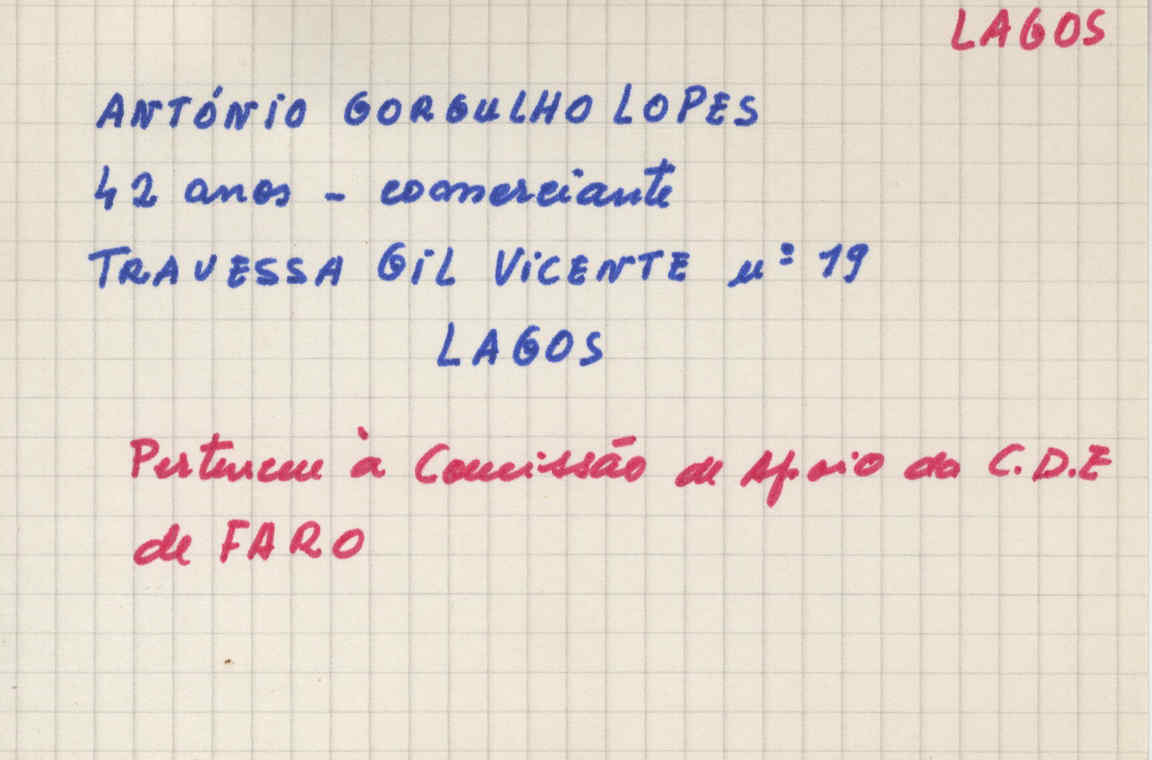 LAGOS
ANTÓNIO GORGULHO LOPES
42 anos - comerciante
TRAVESSA GIL VICENTE nº 19
LAGOS
Pertence à Comissão de Apoio da C.D.E
de FARO